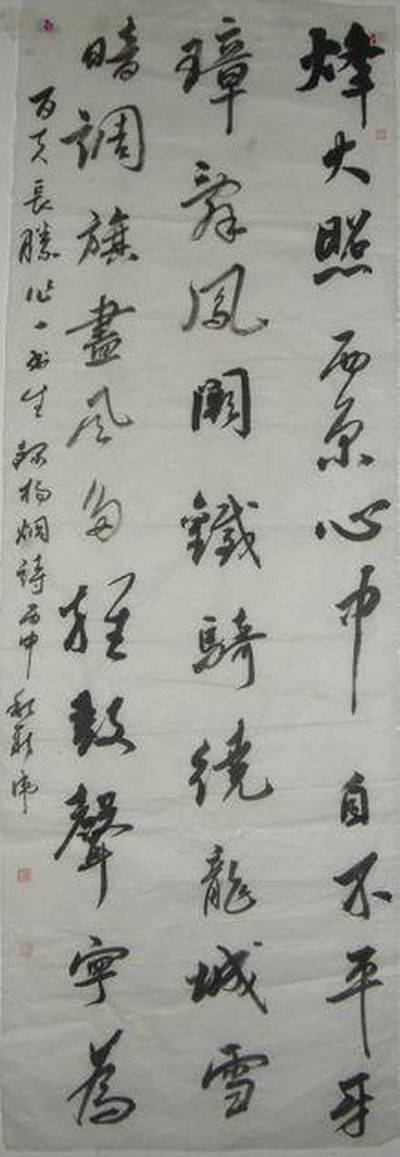 烽火照西京心中自不平牙
璋辭鳳闕鐵騎繞龍城雪
暗調旗畫風多雜鼓聲寧為
百夫長勝作一書生 錄楊烱詩 丙申秋